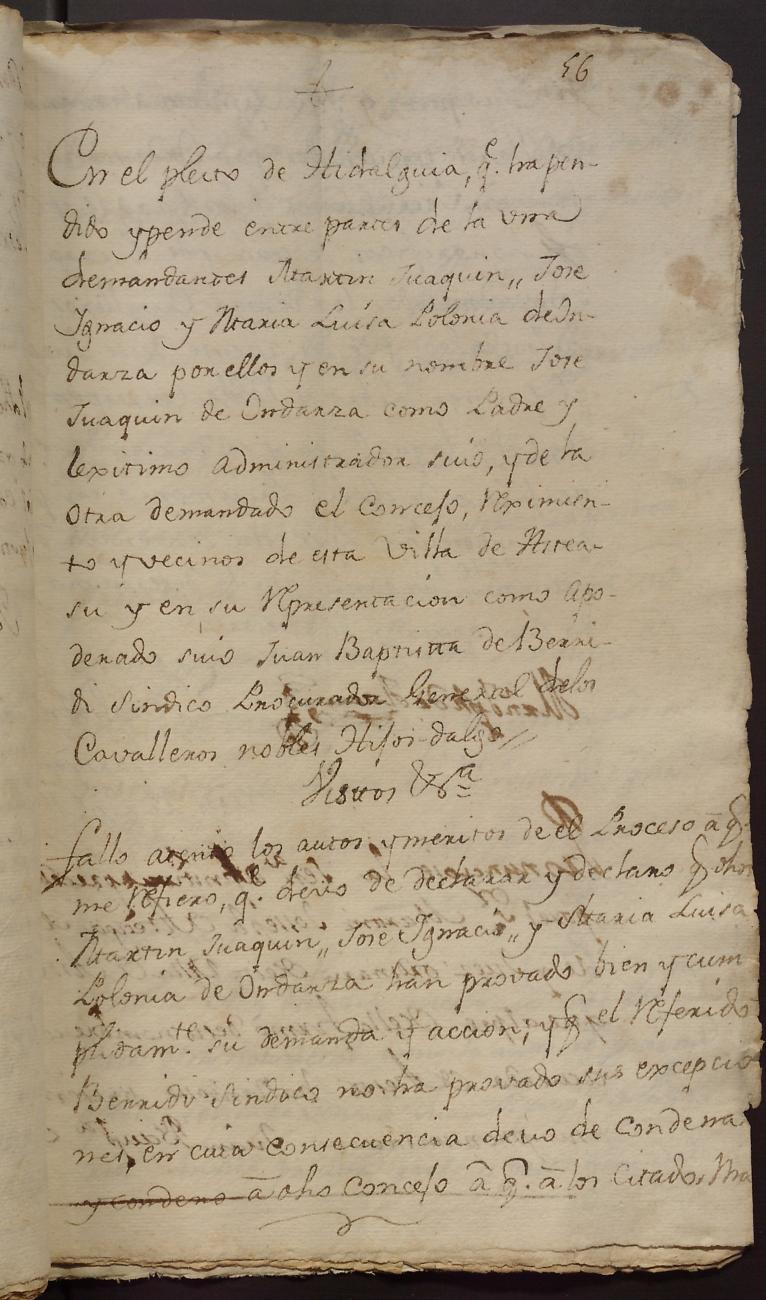 56
En el pleito de Hidalguia, q.e ha pen-
dido y pende entre partes de la una
demandantes Martin Juaquin,, Jose
Ignacio y Maria Luisa Polonia de In-
danza por ellos y en su nombre Jose
Juaquin de Ondarza como Padre y
lexitimo administrador suio, y de la
otra demandado el Concejo, Reximien-
to y vecinos de esta Villa de Astea-
su y en su Representacion como Apo-
derado suio Juan Baptista de Berri-
di Sindico Procurador General de los
Cavalleros nobles Hijos-dalgo
Vistos &.a
fallo atento los autos y meritos de el Proceso â q.e
me Refiero, q.e devo de declarar y declaro q.e dhos
Martin Juaquin,, Jose Ignacio,, y Maria Luisa
Polonia de Ondarza han provado bien y cum
plidam.te su demanda y accion, y q.e el Referido
Berridi Sindico no ha provado sus excepcio
nes, en cuia consecuencia devo de condenar
y condeno â dho Concejo â q.e â los Citados Ma